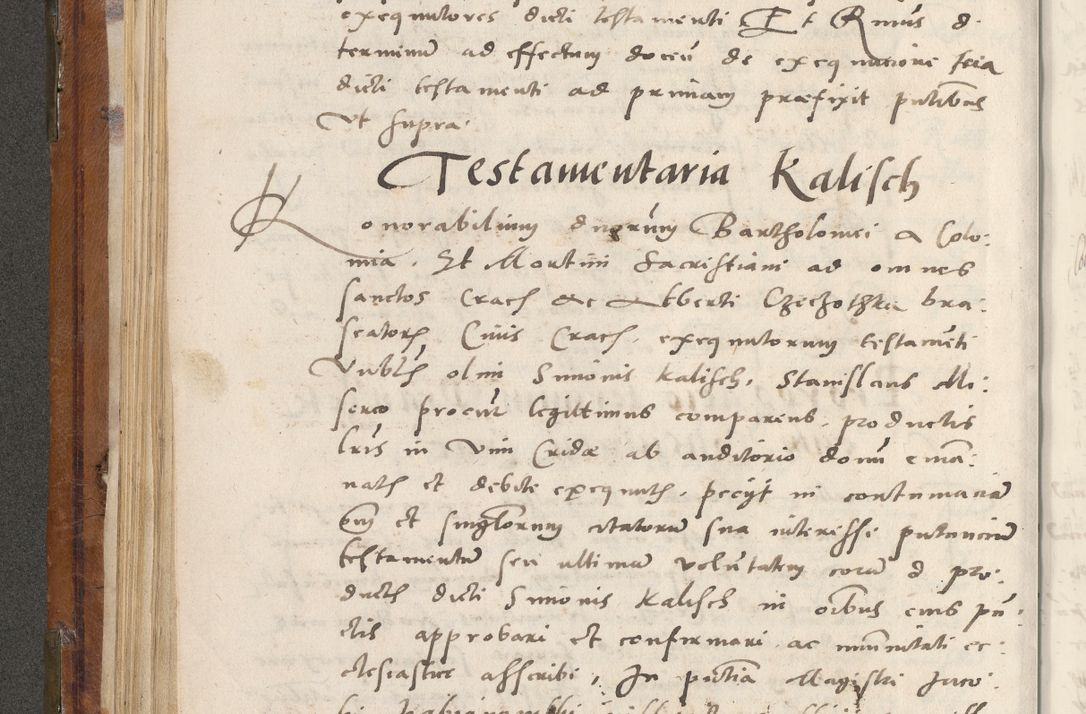 exequutores dicti testamenti Et Rmus d
terminũ ad effectum docẽn de exequucione seia
dicti testamenti ad primam præfixit putibus
vt supra
Testamentaria Kalisch
Honorabilium dnorum Bartholomei a Colo:
mia. Et Martini Sacristiani ad omnes
sanctos Crac̃ ac Alberti Czeczothka bra:
seatorꝭ Ciuis Crac̃. exequutorum testamẽti
olim Simonis Kalisch, Stanislaus Mi:
serco procur legittimus comparens, productis
lris in vim Cridæ ab auditorio domũ emã:
natꝭ et debite exequutꝭ, pecijt in contumaciã
oim et singlorum citatorũ sua interesse putanciũ
testamentũ seu ultimam volũtatem coram d pro:
ductꝭ dicti Simonis Kalisch in oĩbus eius pũ:
ctis approbari et confirmari ac immunitati ec:
clesiastice asscribi, In pñtia Magistri Jaco: